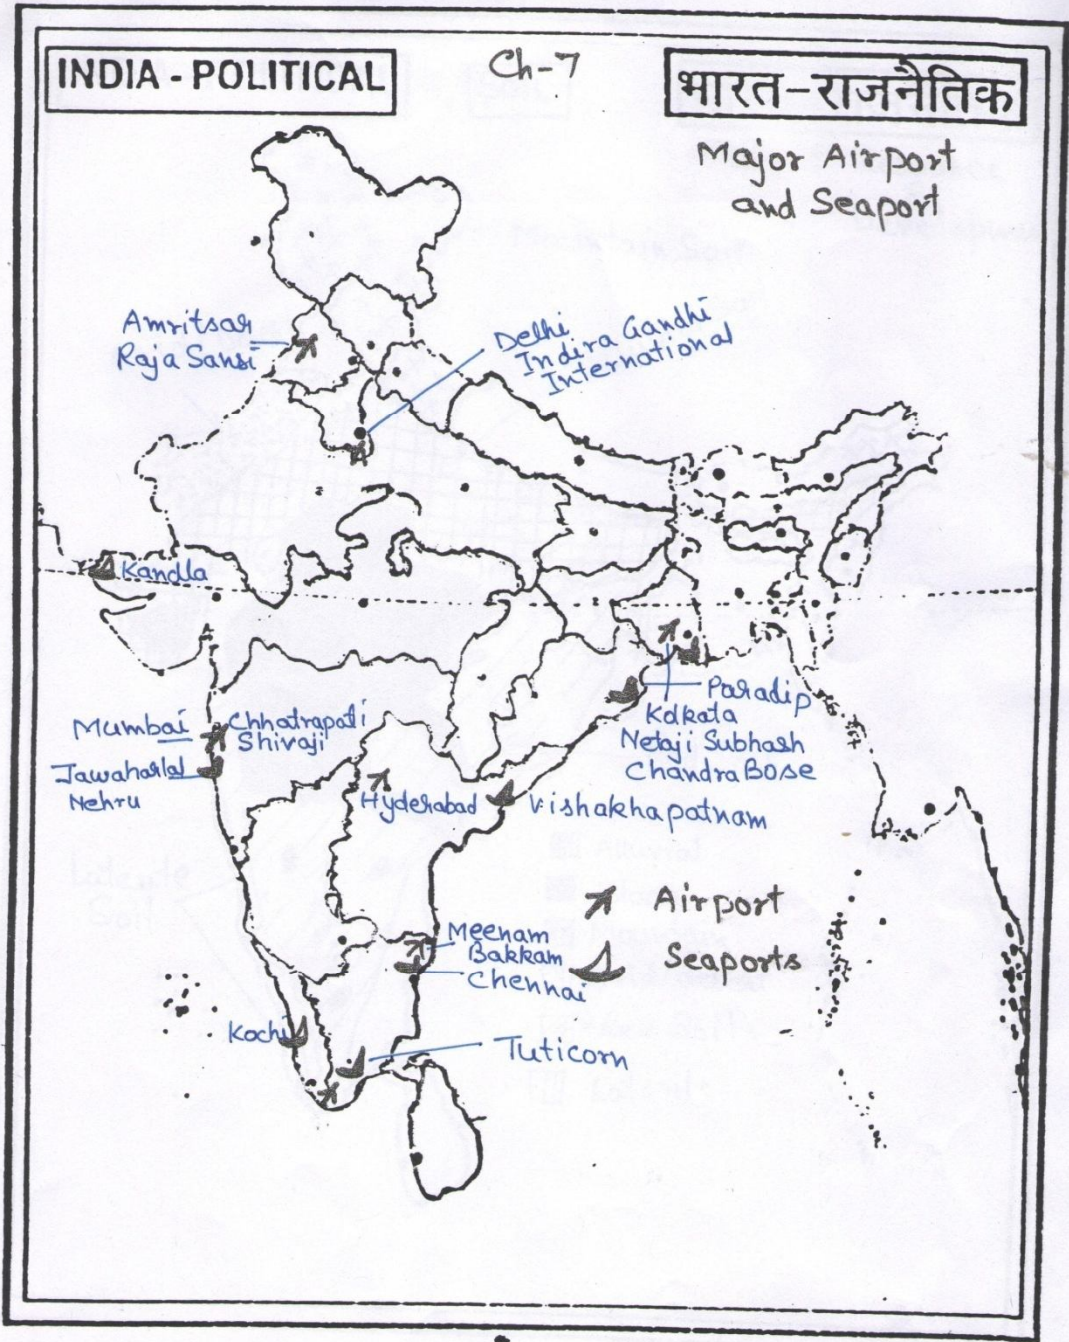 INDIA - POLITICAL
Ch-7
भारत-राजनैतिक
Major Airport
and Seaport
Amritsar
Raja Sansi
Delhi
Indira Gandhi
International
Kandla
Mumbai
Chhatrapati
Shivaji
Jawaharlal
Nehru
Hyderabad
Vishakhapatnam
Paradip
Kolkata
Netaji Subhash
Chandra Bose
Airport
Seaports
Meenam
Bakkam
Chennai
Kochi
Tuticorn